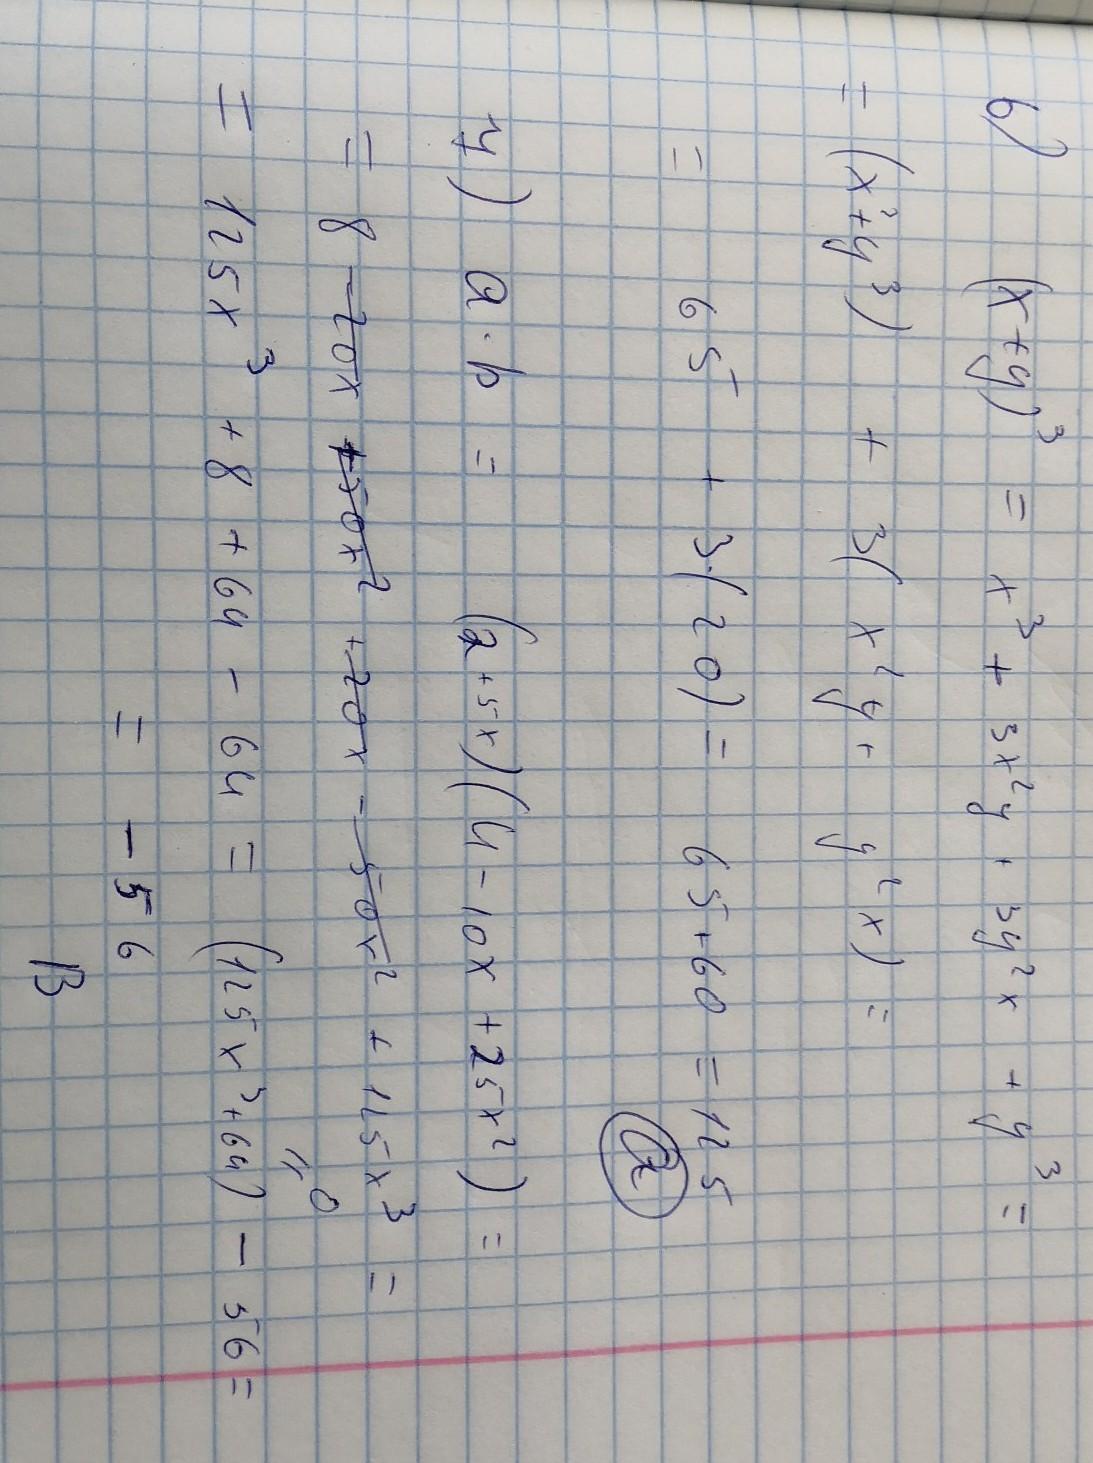 6) (x+y)³ = x³ + 3x²y + 3y²x + y³ =
= (x²+y³) + 3(x²y + y²x) =
= 65 + 3·(20) = 65+60 = 125
a
7) a·b = (2+5x)(4-10x+25x²) =
= 8 -20x +50x² +20x -50x² + 125x³ =
= 125x³ + 8 + 64 - 64 = (125x³+64) - 56 =
"0
= -56
B